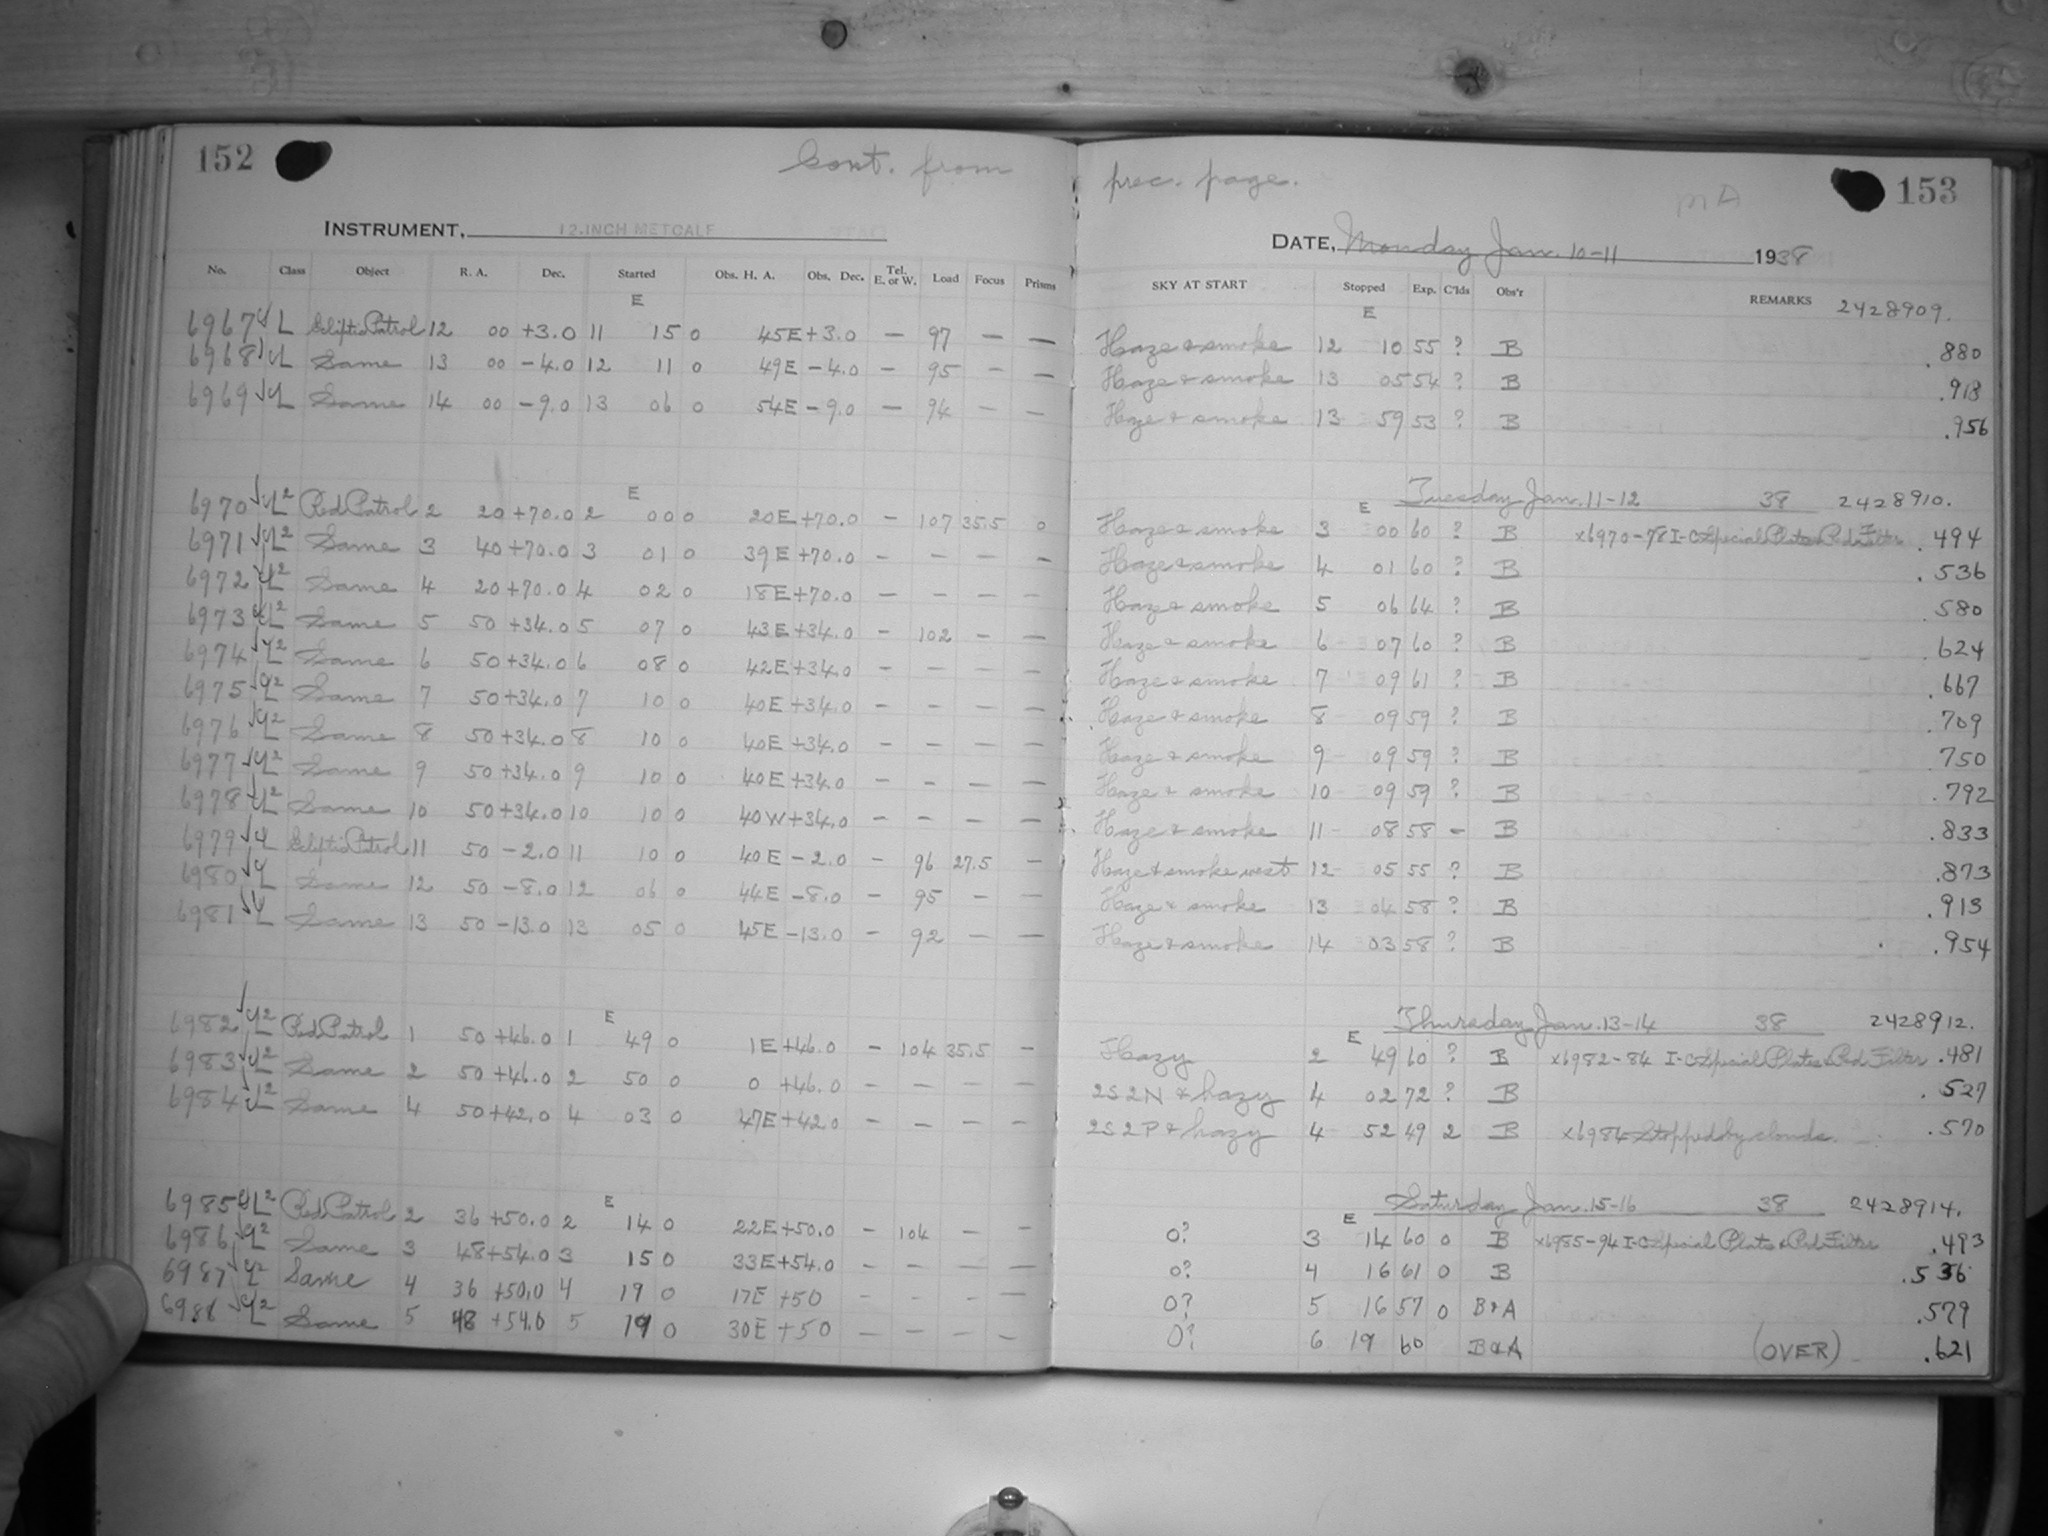 152 Cont. from prec. page. MA 153
INSTRUMENT, 12-INCH METCALF DATE, Monday Jan. 10-11 1938
No. Class Object R. A. Dec. Started Obs. H. A. Obs. Dec. Tel. E. or W. Load Focus Prisms SKY AT START Stopped Exp. C'lds Obs'r REMARKS 2428909.
E E
6967 L Ecliptic Patrol 12 00 +3.0 11 15 0 45E +3.0 — 97 — — Haze & smoke 12 10 55 ? B .880
6968 L Same 13 00 -4.0 12 11 0 49E -4.0 - 95 - — Haze & smoke 13 05 54 ? B .913
6969 L Same 14 00 -9.0 13 06 0 54E -9.0 — 94 — — Haze & smoke 13 59 53 ? B .956
E E Tuesday Jan. 11-12 38 2428910.
6970 L2 Red Patrol 2 20 +70.0 2 00 0 20E +70.0 - 107 35.5 0 Haze & smoke 3 00 60 ? B x6970-78 I-C Special Plates Red Filter .494
6971 L2 Same 3 40 +70.0 3 01 0 39E +70.0 — — — — Haze & smoke 4 01 60 ? B .536
6972 L2 Same 4 20 +70.0 4 02 0 18E +70.0 — — — — Haze & smoke 5 06 64 ? B .580
6973 L2 Same 5 50 +34.0 5 07 0 43E +34.0 - 102 - — Haze & smoke 6 07 60 ? B .624
6974 L2 Same 6 50 +34.0 6 08 0 42E +34.0 - - - - Haze & smoke 7 09 61 ? B .667
6975 L2 Same 7 50 +34.0 7 10 0 40E +34.0 - - - - Haze & smoke 8 09 59 ? B .709
6976 L2 Same 8 50 +34.0 8 10 0 40E +34.0 - - - — Haze & smoke 9 09 59 ? B .750
6977 L2 Same 9 50 +34.0 9 10 0 40E +34.0 - - - — Haze & smoke 10 09 59 ? B .792
6978 L2 Same 10 50 +34.0 10 10 0 40W +34.0 - - - — Haze & smoke 11 08 58 - B .833
6979 L Ecliptic Patrol 11 50 -2.0 11 10 0 40E -2.0 - 96 27.5 — Haze & smoke west 12 05 55 ? B .873
6980 L Same 12 50 -8.0 12 06 0 44E -8.0 - 95 - — Haze & smoke 13 04 58 ? B .913
6981 L Same 13 50 -13.0 13 05 0 45E -13.0 - 92 — — Haze & smoke 14 03 58 ? B .954
E E Thursday Jan. 13-14 38 2428912.
6982 L2 Red Patrol 1 50 +46.0 1 49 0 1E +46.0 - 104 35.5 — Hazy 2 49 60 ? B x6982-84 I-C Special Plates & Red Filter .481
6983 L2 Same 2 50 +46.0 2 50 0 0 +46.0 - - - - 2S 2N & hazy 4 02 72 ? B .527
6984 L2 Same 4 50 +42.0 4 03 0 47E +42.0 - - - - 2S 2P & hazy 4 52 49 2 B x6984 Stopped by clouds. .570
E E Saturday Jan. 15-16 38 2428914.
6985 L2 Red Patrol 2 36 +50.0 2 14 0 22E +50.0 - 104 - — 0? 3 14 60 0 B x6985-94 I-C Special Plates & Red Filter .493
6986 L2 Same 3 48 +54.0 3 15 0 33E +54.0 - - - — 0? 4 16 61 0 B .536
6987 L2 Same 4 36 +50.0 4 19 0 17E +50 — — — — 0? 5 16 57 0 B&A .579
6988 L2 Same 5 48 +54.0 5 19 0 30E +50 — — — — 0? 6 19 60 B&A (OVER) .621